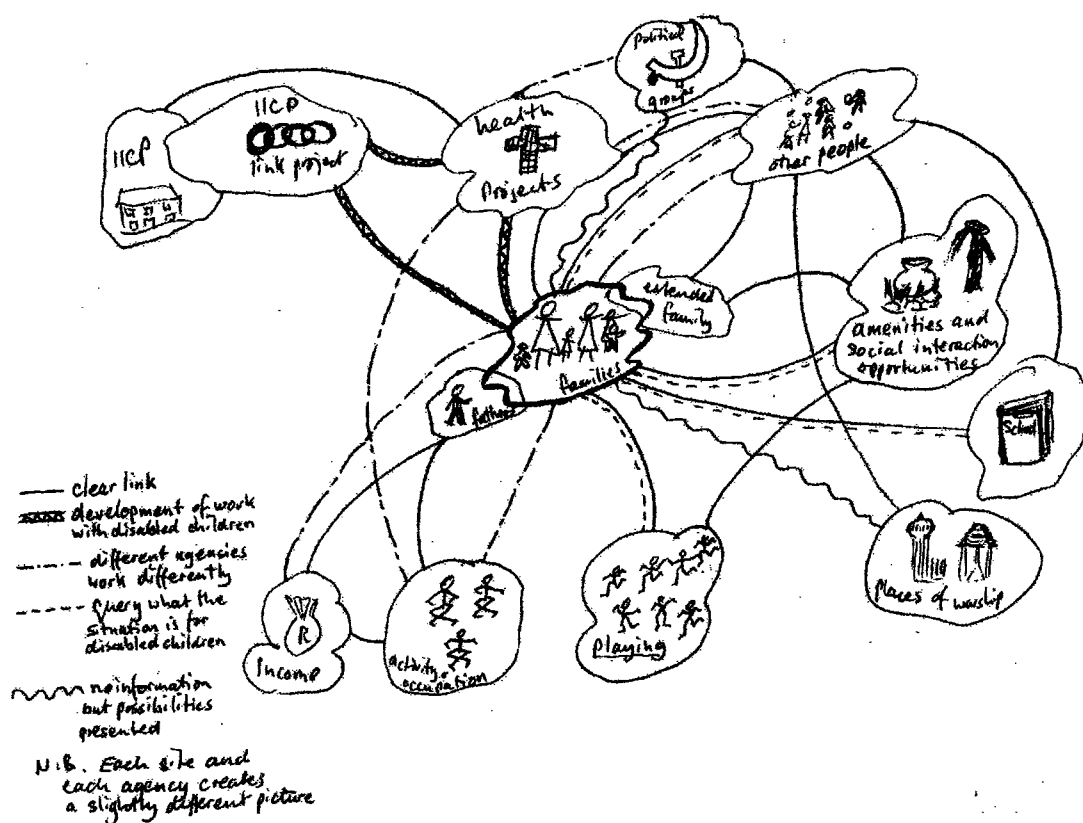 Political
groups
IICP
IICP
link project
health
projects
other people
extended
family
families
fathers
amenities and
social interaction
opportunities
School
Places of worship
Playing
activity &
occupation
R
Income
clear link
development of work
with disabled children
different agencies
work differently
Query what the
situation is for
disabled children
no information
but possibilities
presented
N.B. Each site and
each agency creates
a slightly different picture